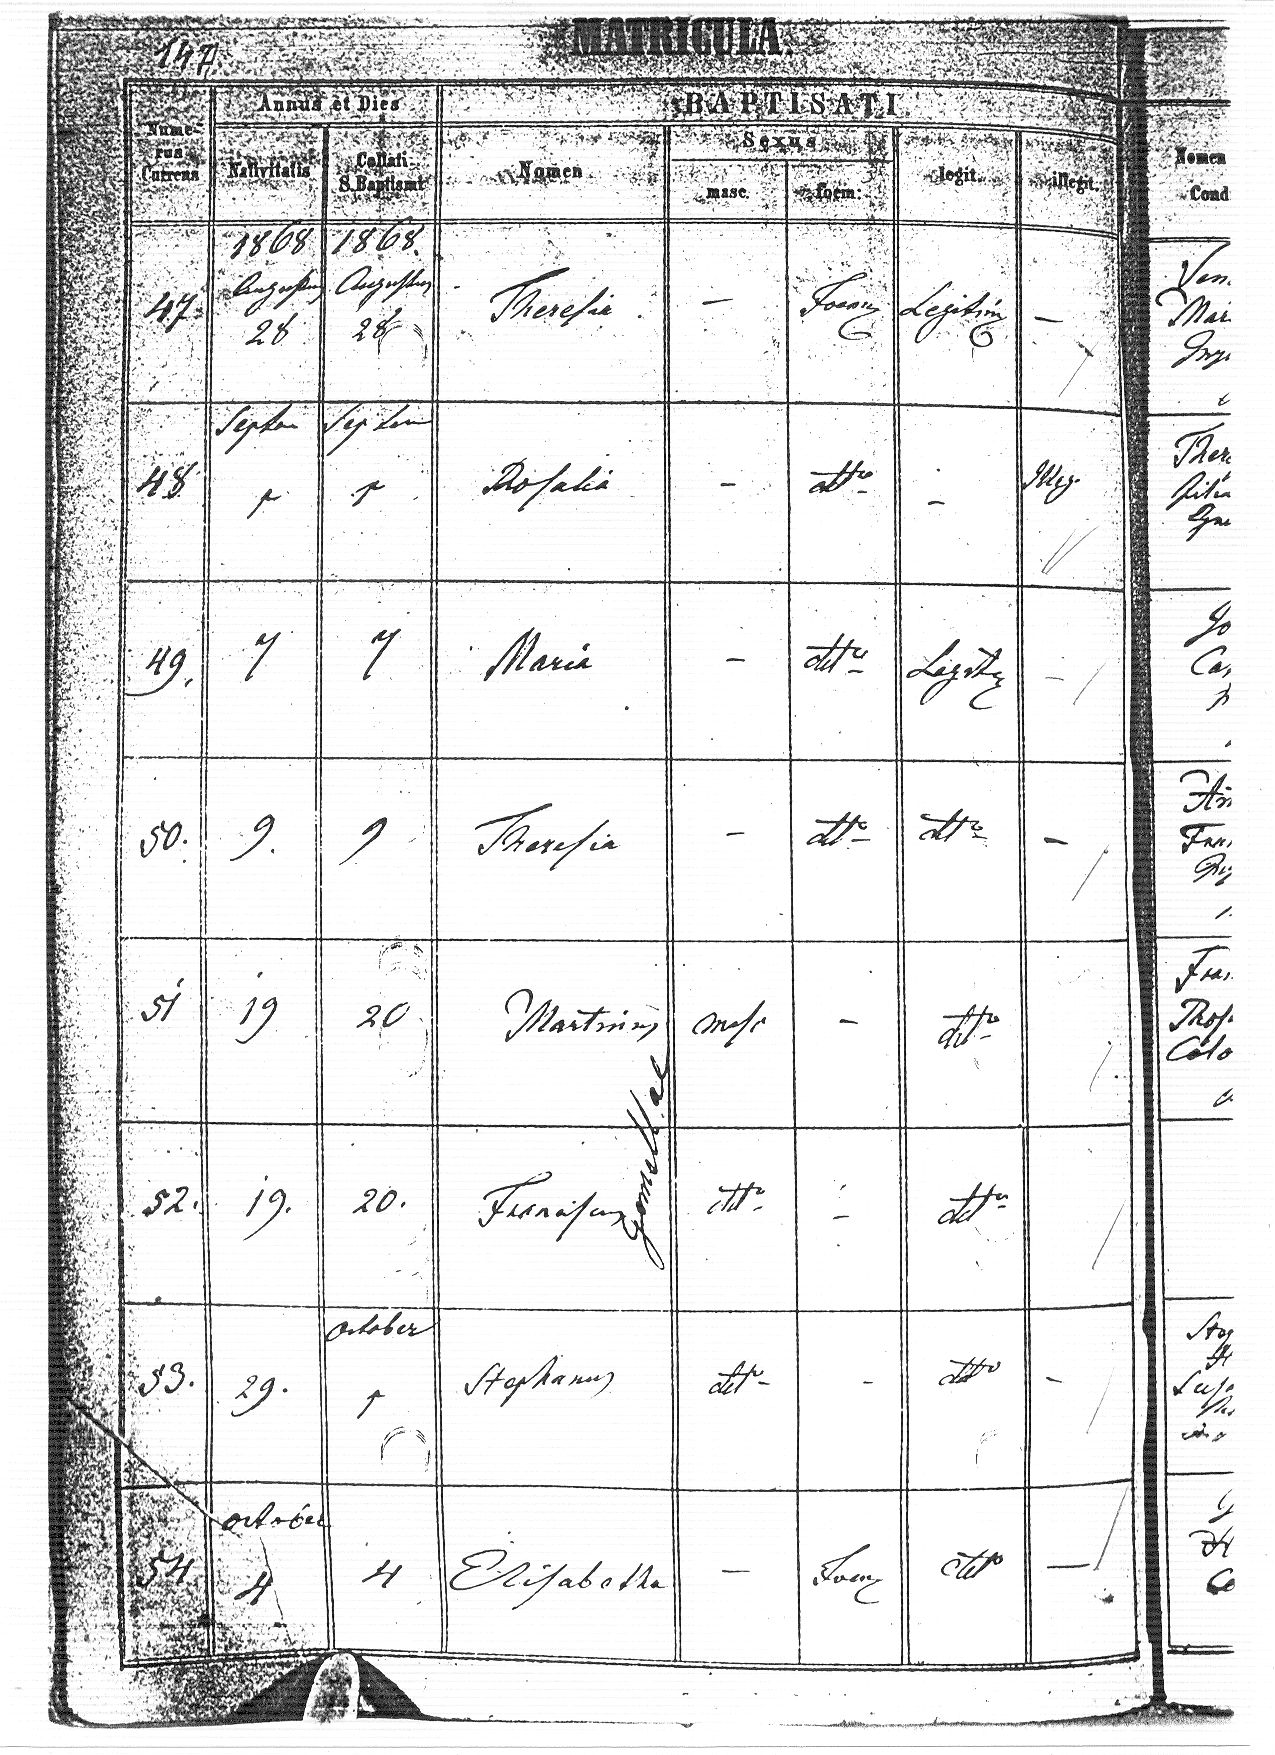 147.
MATRICULA.
Annus et Dies
BAPTISATI
Nume-
rus
Currens
Nativitatis
Collati
S. Baptismi
Nomen
Sexus
masc.
foem:
legit.
illegit.
Nomen
Cond
1868 1868.
47. Augustus 28 Augustus 28 Theresia — Foem Legitim —
Septem Septem
48 Rosalia — dtto — Illeg.
49. 7 7 Maria — dtto Legitim —
50. 9. 9 Theresia — dtto dtto —
51 19 20 Martinus masc — dtto
gemelli
52. 19. 20. Franciscus dtto — dtto
October
53. 29. Stephanus dtto — dtto —
October
54 4 4 Elisabetha — Foem dtto —